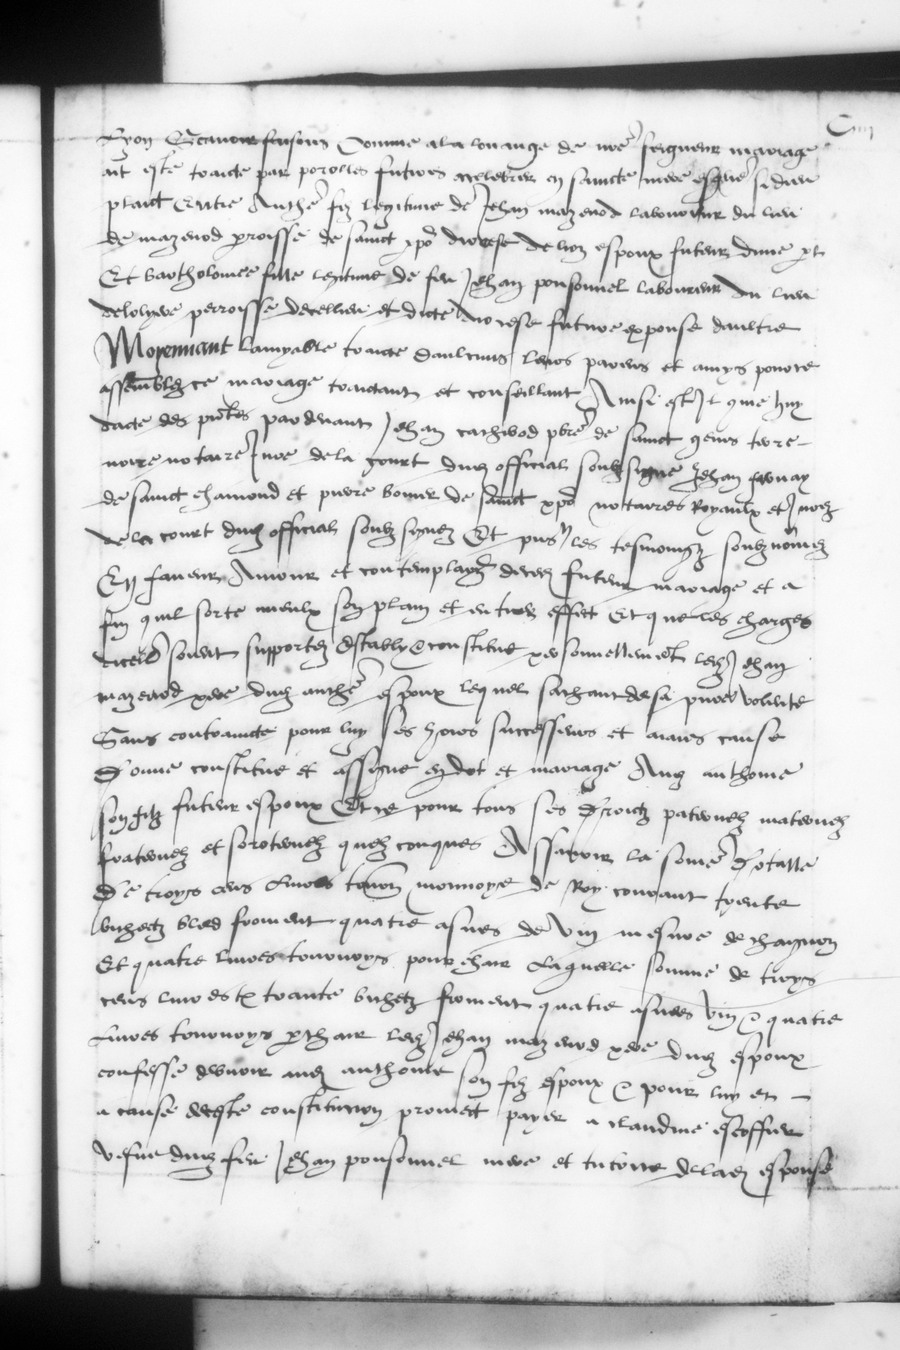 Ciiii
Lyon Scavoir faisons Comme a la louange de nre seigneur mariage
ait este traicte par parolles futures accelebrer en saincte mere esglise si dieu
plaict Entre Anthe filz legitime de Jehan mazenod laboureur du lieu
de mazenod parroisse de sainct xpo diocese de lion espoux futeur dune part
Et bartholomee fille legitime de feu Jehan ponsonnel laboureur du lieu
perroisse et dicte diocese future expouse daultre
Moyennant lamyable traicte daulcuns leurs parens et amys pource
assemblez ce mariage traictant et conseillant Ainsi est Il que huy
dacte des pntes pardevant Jehan pbre de sainct genis terre
noire notaire Jure de la court dudz official soubzsigne Jehan
de sainct chamond et pierre bonier de sainct xpo notaires Royaulx et Jurez
de la court dudz official soubz signez Et pns les tesmoingz soubz nomez
En faveur Amour et contemplaon decedz futeur mariage et a
fin quil sorte mieulx son plain et entier effect Et que les charges
dicelluy soient supportez Estably & constitue personnellement ledz Jehan
mazenod pere dudz anthe espoux lequel saichant de sa pure volunte
Sans contraincte pour luy ses hoirs successeurs et aians cause
Donne constitue et assigne en dot et mariage Audz anthoine
son filz futeur espoux Et ce pour tous ses droictz paternelz maternelz
fraternelz et sororternelz quelz conques Assavoir la some dotalle
De troys cens livres tournois monnoye de Roy courant trente
bichetz bled froment quatre asnees de vin mesure de chaignon
Et quatre livres tournoys pour chair Laquelle somme de troys
cens livres t trante bichetz froment quatre asnees vin & quatre
Livres tournoys p chair ledz Jehan mazenod pere dudz espoux
confesse devoir audz anthoine son filz espoux & pour luy et
a cause deceste constitucion promect payer a claudine escoffier
vefve dudz feu Jehan ponsonnel mere et tutrice de ladz espouse